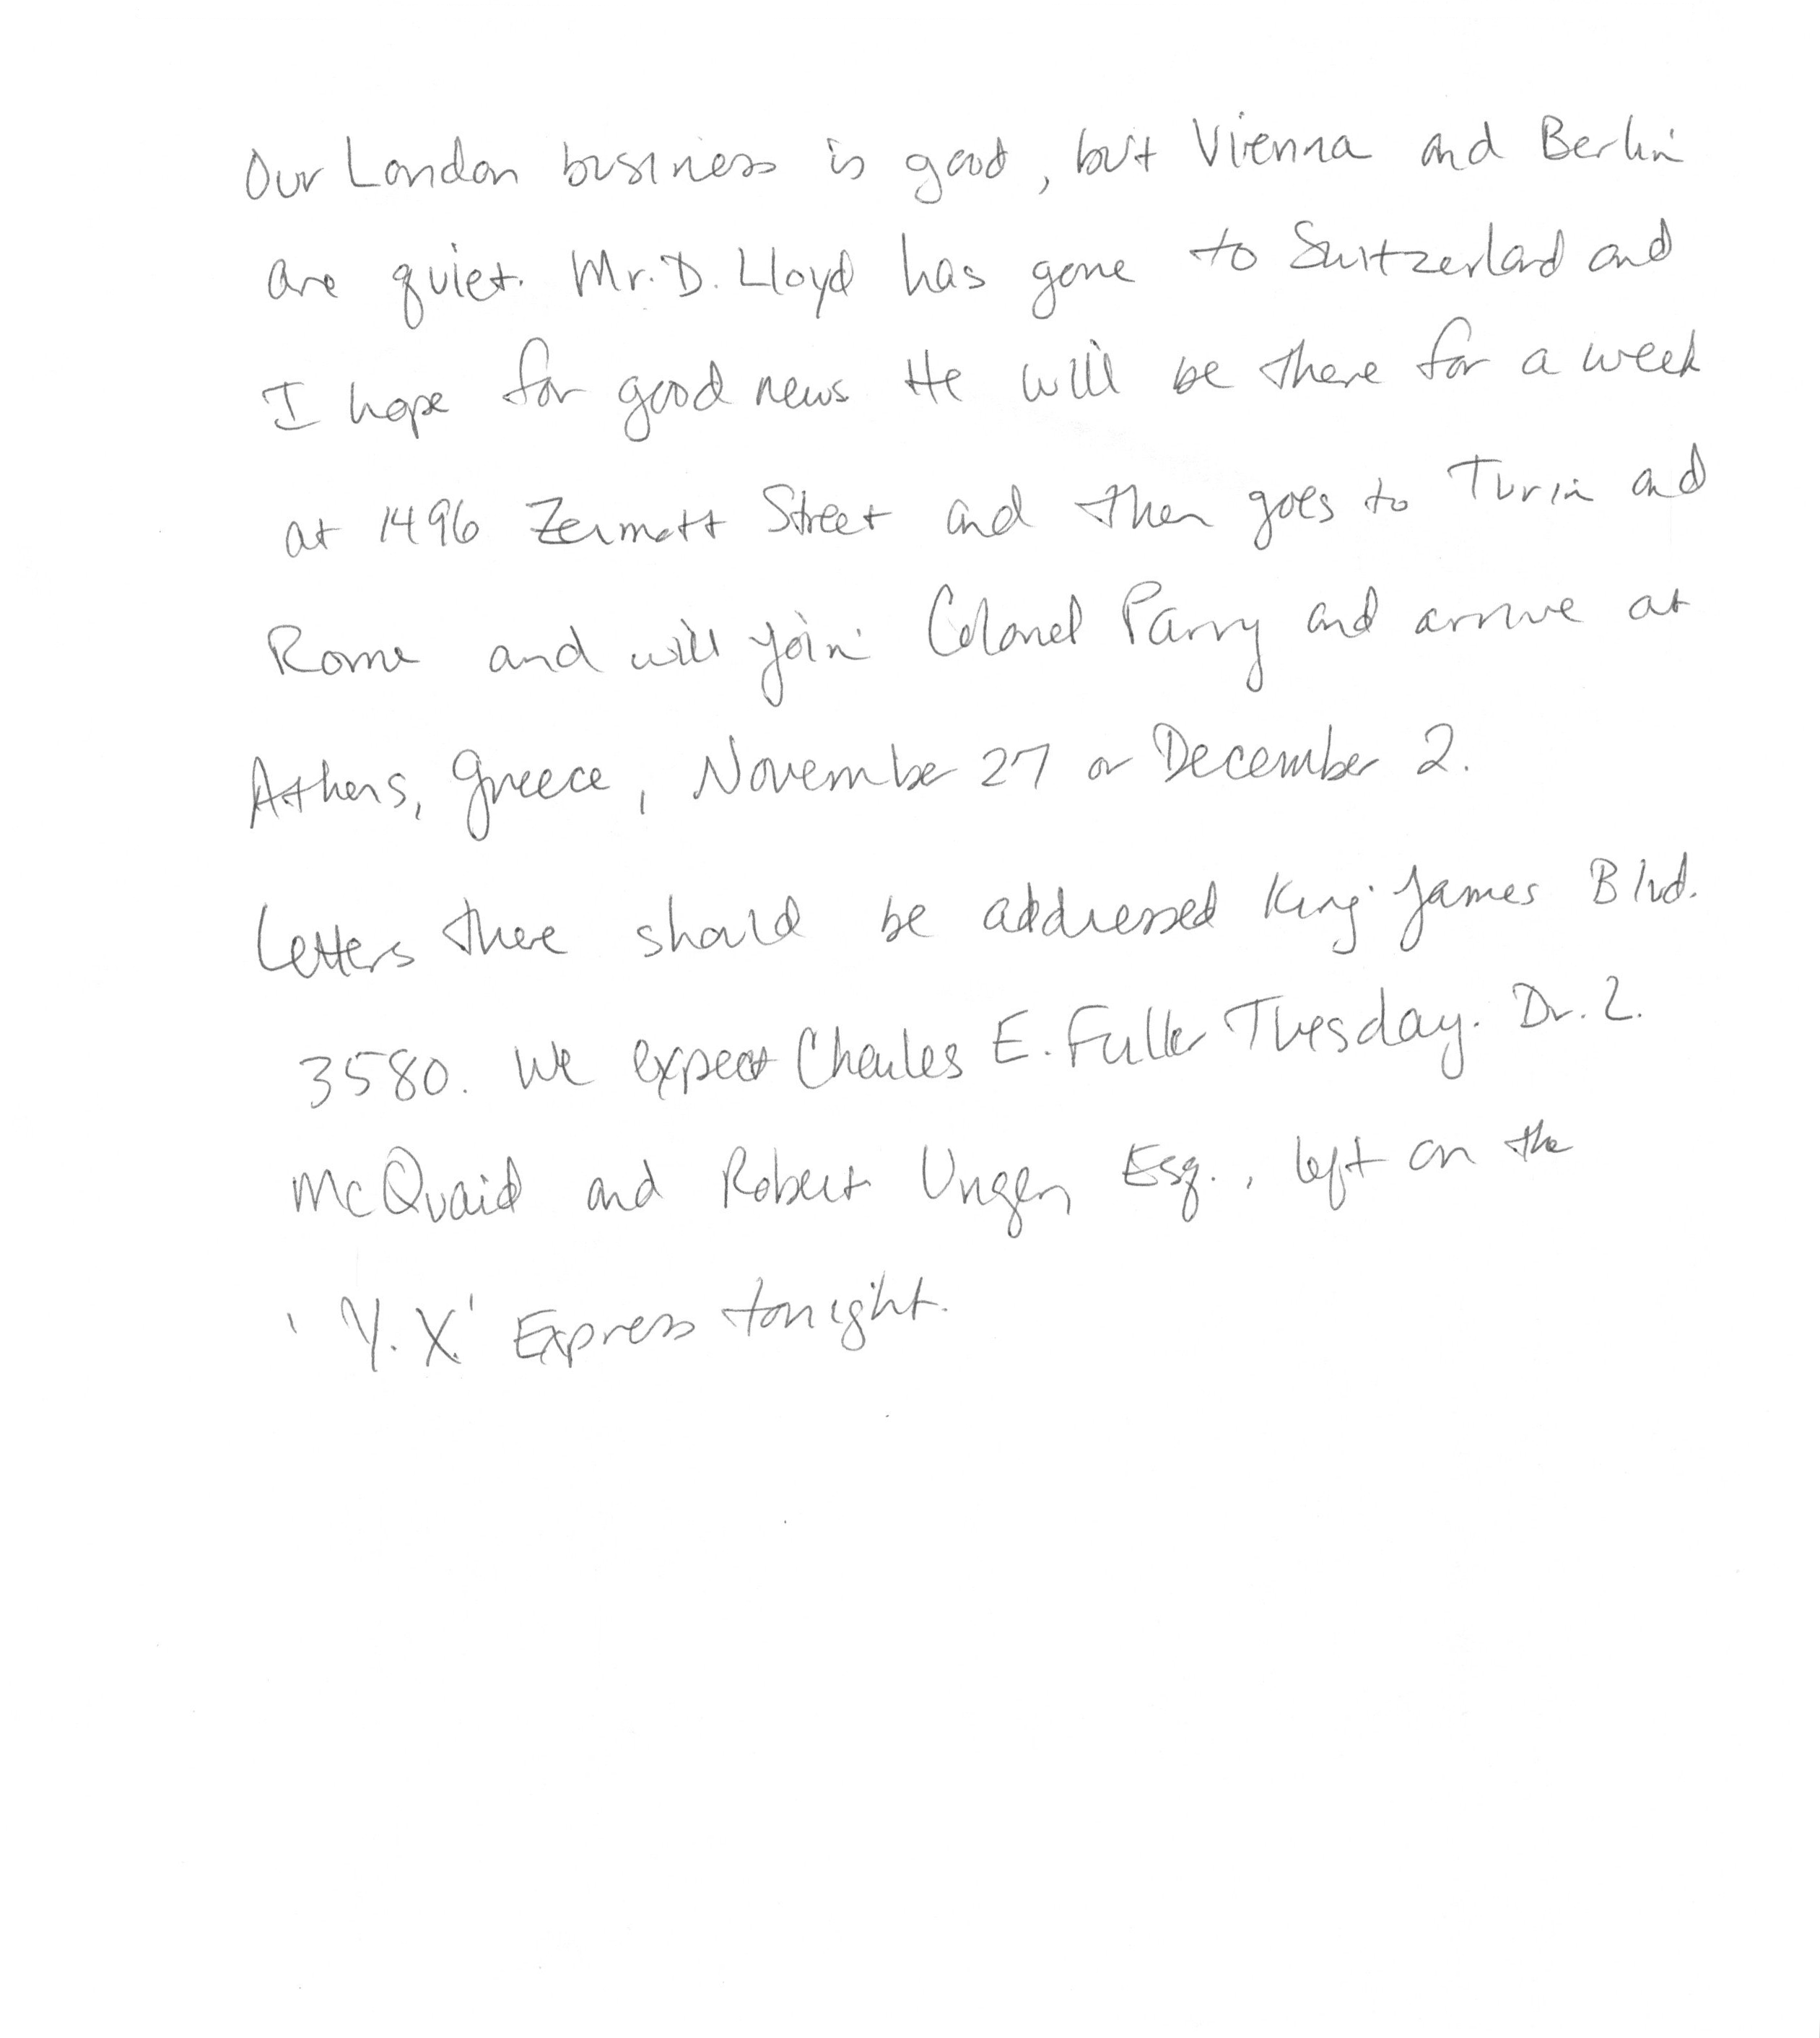 Our London business is good, but Vienna and Berlin
are quiet. Mr. D. Lloyd has gone to Switzerland and
I hope for good news. He will be there for a week
at 1496 Zermott Street and then goes to Turin and
Rome and will join Colonel Parry and arrive at
Athens, Greece, November 27 or December 2.
Letters there should be addressed King James Blvd.
3580. We expect Charles E. Fuller Tuesday. Dr. L.
McQuaid and Robert Unger, Esq., left on the
'Y.X.' Express tonight.